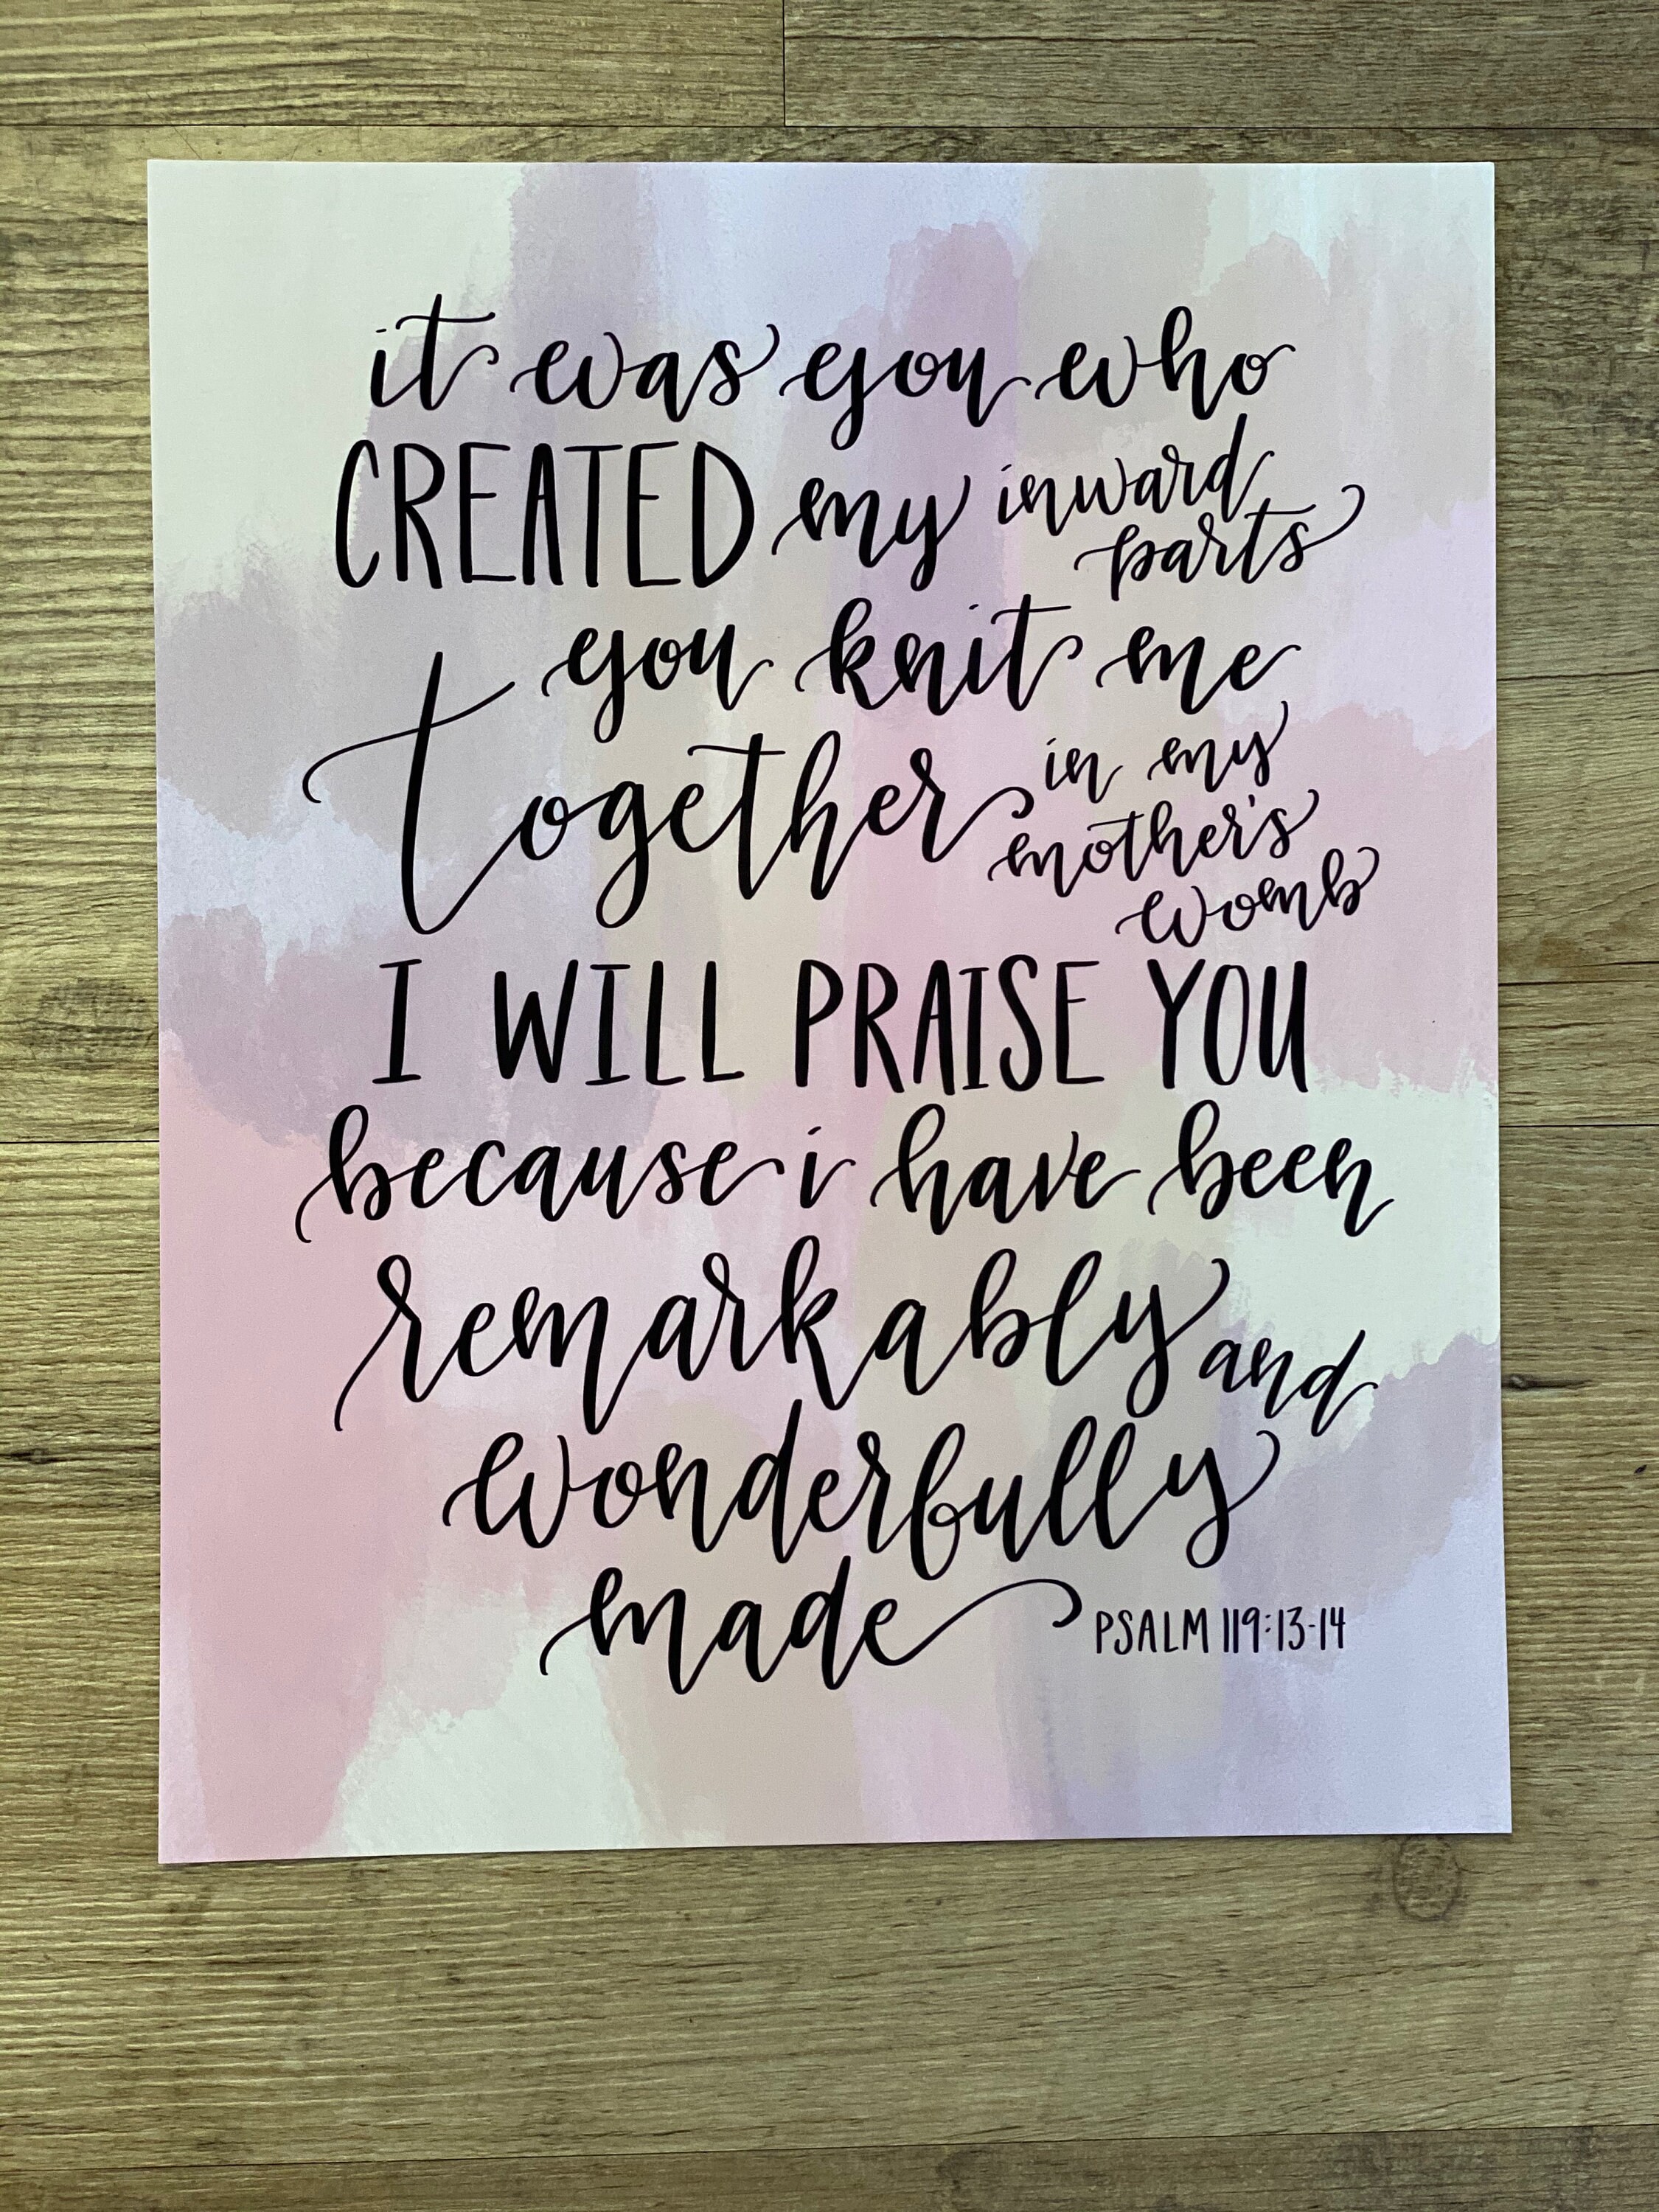 it was you who
CREATED my inward
parts
you knit me
together in my
mother's
womb
I WILL PRAISE YOU
because i have been
remarkably and
wonderfully
made PSALM 119:13-14